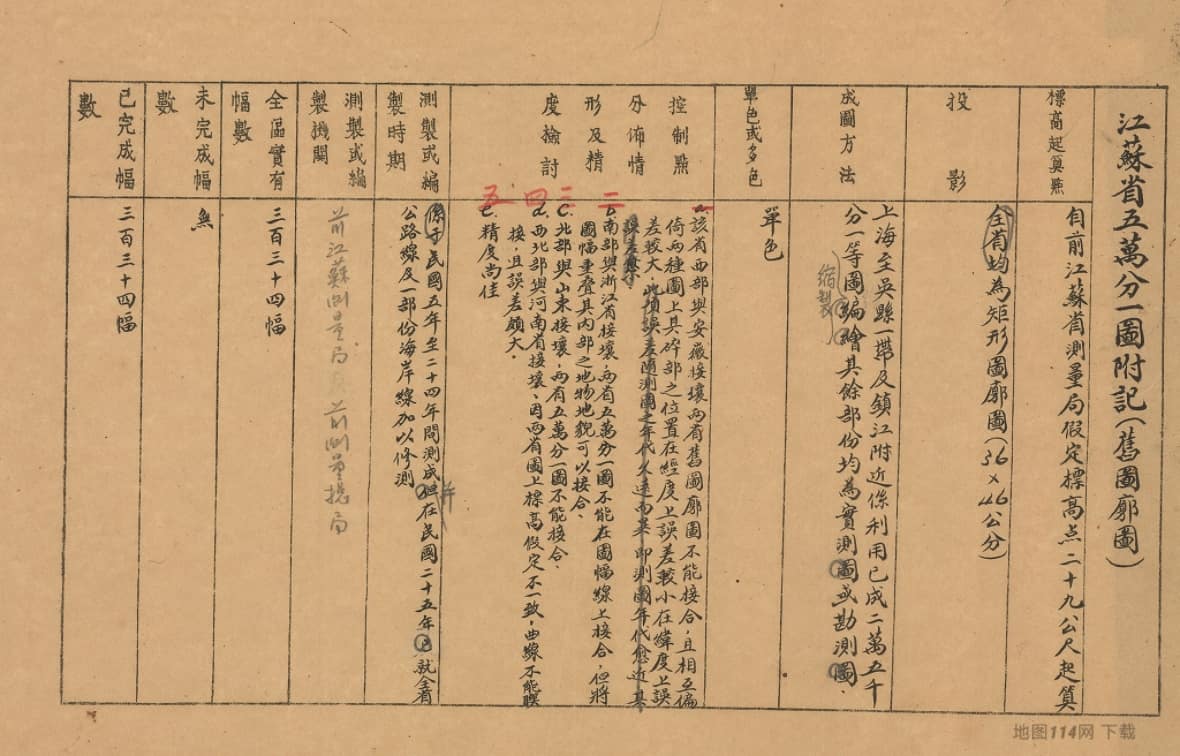 江蘇省五萬分一圖附記(舊圖廓圖)
標高起算點
自前江蘇省測量局假定標高点二十九公尺起算
投影
全省均為矩形圖廓圖(36×46公分)
成圖方法
上海至吳縣一帶及鎮江附近係利用已成二萬五千
分一等圖編繪其餘部份均為實測圖或勘測圖.
縮製
單色或多色
單色
控制點
分佈情
形及精
度檢討
一
二
三
四
五
a.該省西部與安徽接壤兩省舊圖廓圖不能接合,且相互偏
倚兩種圖上具碎部之位置在經度上誤差較小在緯度上誤
差較大,此項誤差隨測圖之年代久遠而異即測圖年代愈近其
誤差愈小
b.南部與浙江省接壤,兩省五萬分一圖不能在圖幅線上接合,但將
圖幅重疊其內部之地物地貌可以接合.
c.北部與山東接壤,兩省五萬分一圖不能接合.
d.西北部與河南省接壤,因兩省圖上標高假定不一致,曲線不能啣
接,且誤差頗大.
e.精度尚佳
測製或編
製時期
係于民國五年至二十四年間測成但在民國二十五年已就全省
并
公路線及一部份海岸線加以修測
測製或編
製機關
前江蘇測量局及前測量總局
全區實有
幅數
三百三十四幅
未完成幅
數
無
已完成幅
數
三百三十四幅
地图114网 下载